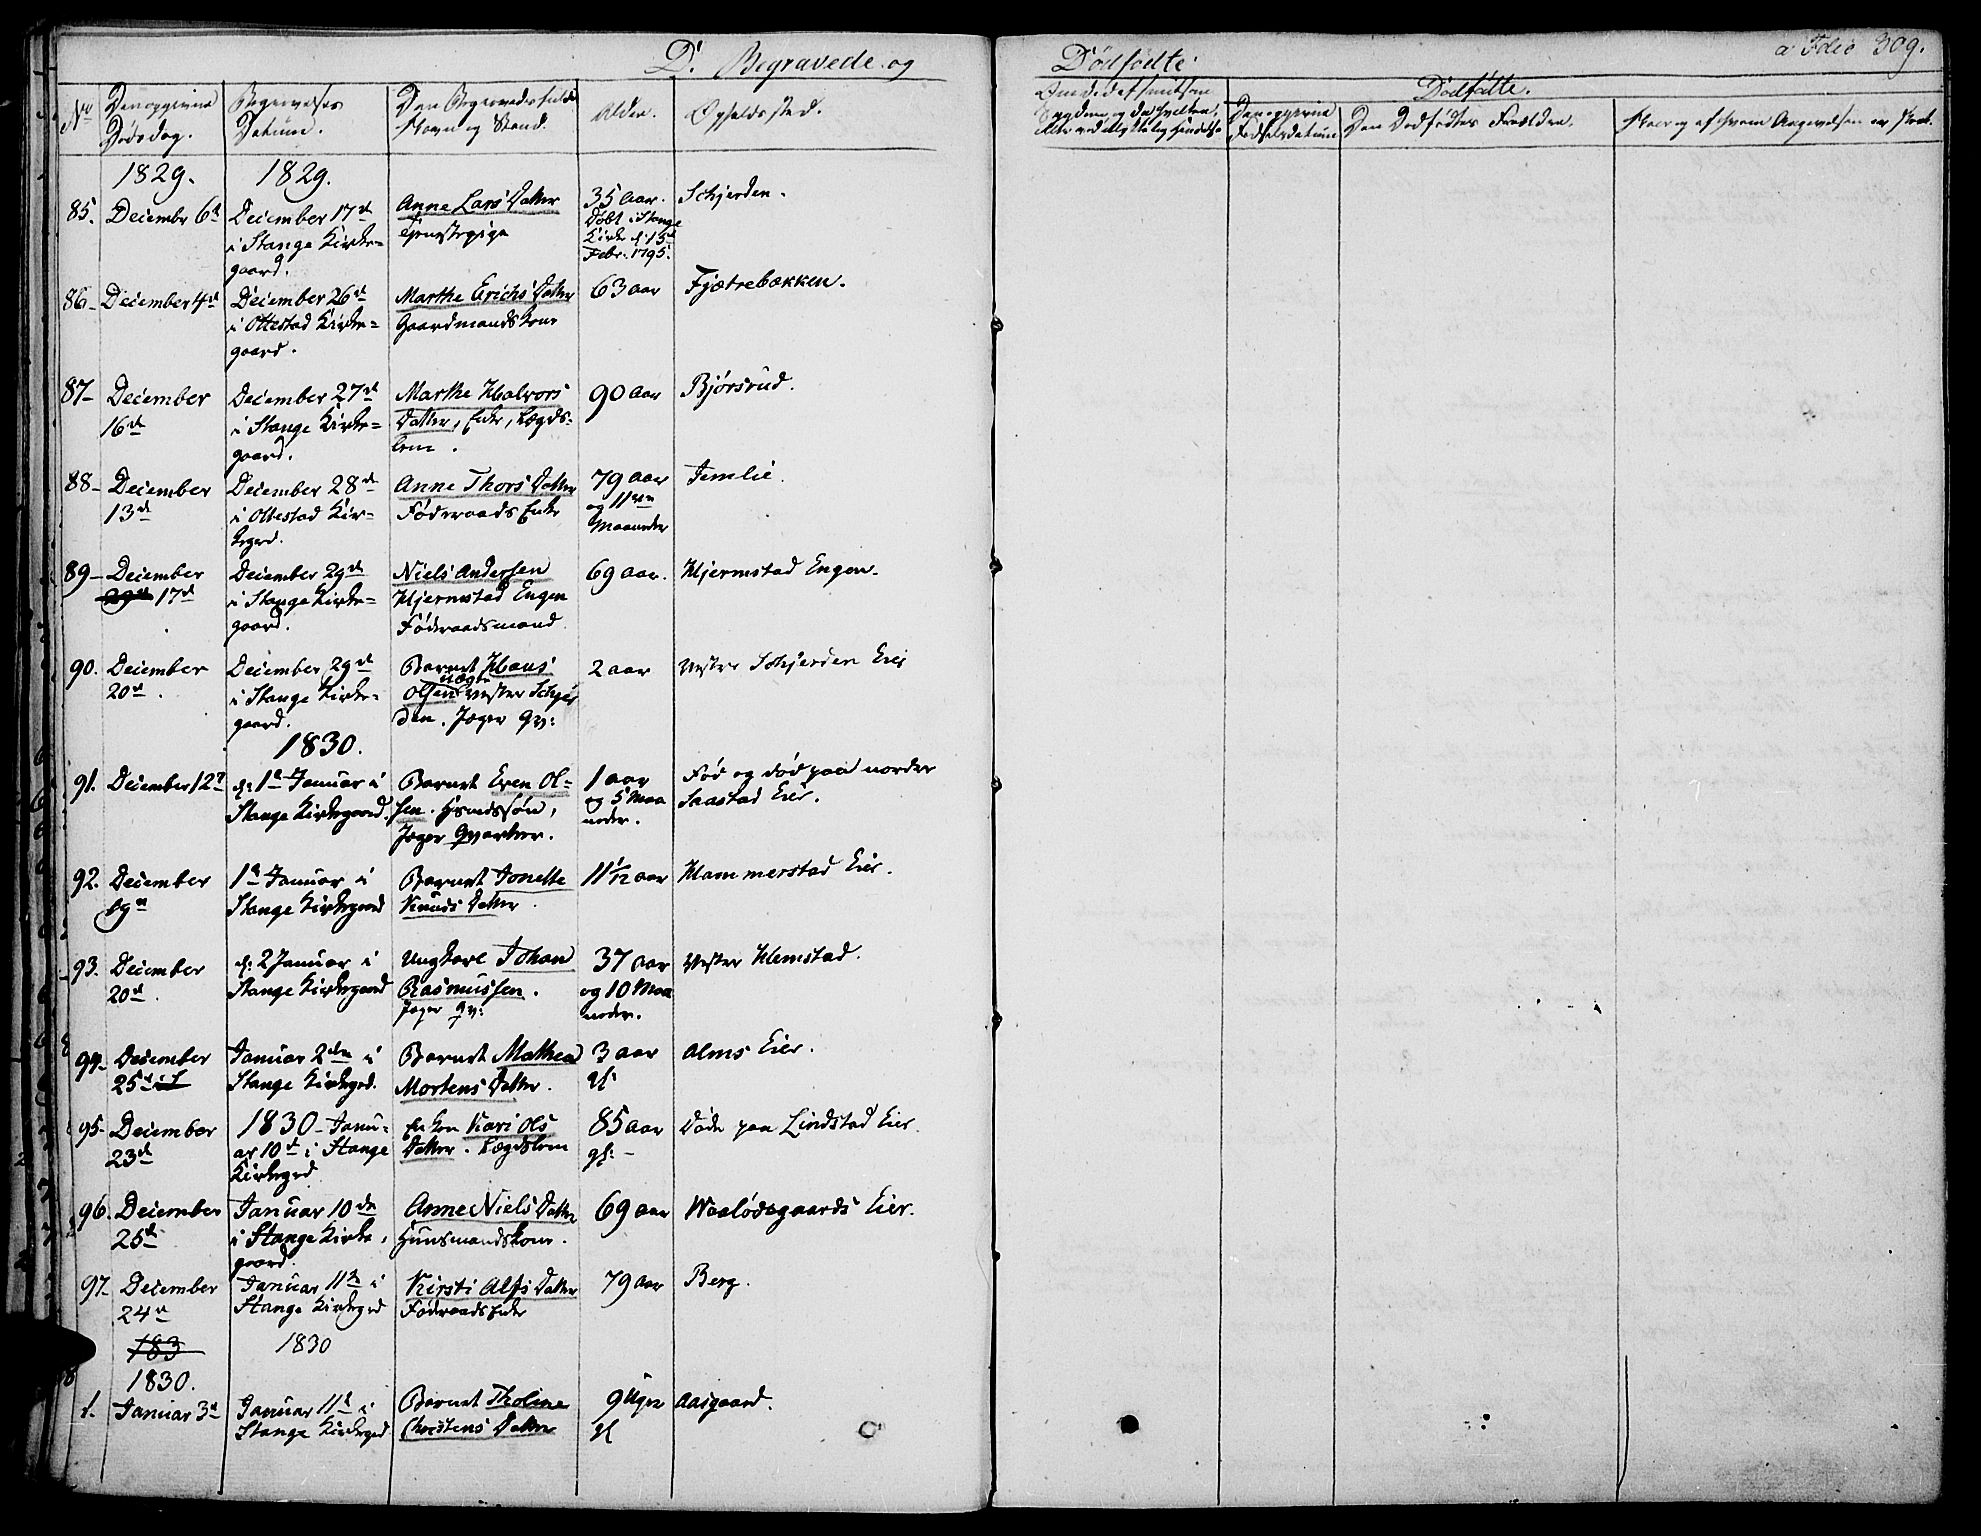 D. Begravede og Dødfødte
a Folio 309.
No
Den opgivne Dødsdag.
Begravelses Datum.
Den Begravedes fulde Navn og Stand.
Alder.
Opholdssted.
Dødfødte.
Den opgivne Fødselsdatum
Den Dødfødtes Forældre.
1829. 1829.
85. Decembr 6te December 17de i Stange Kirke= gaard. Anne Lars Datter Tjenestepige 35 Aar. Døbt i Stange Kirke d: 15de Febr. 1795. Schjerden.
86- December 4de December 26de i Ottestad Kirke= gaard. Marthe Erichs Datter Gaardmands Kone 63 Aar Fjætrebækken.
87- December 16de December 27de i Stange Kirke= gaard. Marthe Halvors Datter, Enke, Lægds- lem. 90 Aar Bjørsrud.
88- December 13de December 28de i Ottestad Kir= kegrd. Anne Thors Datter Føderaads Enke 79 Aar og 11 Maaneder Jemlie.
89- December 17de December 29de i Stange Kirke= gaard. Niels Andersen Hjermstad Engen Føderaadsmand 69 Aar. Hjermstad Engen.
90. December 20de. December 29de i Stange Kirke= gaard. Barnet Hans Olsen uægte Vester Schjer den. Jeger Qv: 2 Aar Vester Schjerden Eier
1830.
91. December 12te d: 1te Januar i Stange Kirkegaard. Barnet Even Ol= sen. Huusmssøn, Jeger Qvarter. 1 Aar og 5 Maa neder. Fød og død paa nordre Saastad Eier.
92. December 19de 1te Januar i Stange Kirkegaard Barnet Jonette Knuds Datter. 11/12 Aar Hammerstad Eier.
93. December 20de. d: 2 Januar i Stange Kirkegaard Ungkarl Johan Rasmussen. Jeger Qv: 37 Aar og 10 Maa neder. Vester Hemstad.
94- December 25de Januar 2den i Stange Kirkegrd. Barnet Mathea Mortens Datter. 3 Aar gl: Alms Eier.
95- December 23de 1830- Janu= ar 10de i Stange Kirkegrd Enken Kari Ols Datter. Lægdslem 85 Aar gl: - Døde paa Lindstad Eier.
96. December 25de Januar 10de i Stange Kirke, gaard. Anne Niels Datter Huusmandskone. 69 Aar Waalødegaards Eier.
97. December 24de Januar 11te i Stange Kirkegrd Kirsti Alfs Datter Føderaads Enke 79 Aar Berg.
183 1830
1830.
1. Januar 3de Januar 11te i Stange Kirkegrd Barnet Tholine Christens Datter 9 Uger gl Aasgaard.